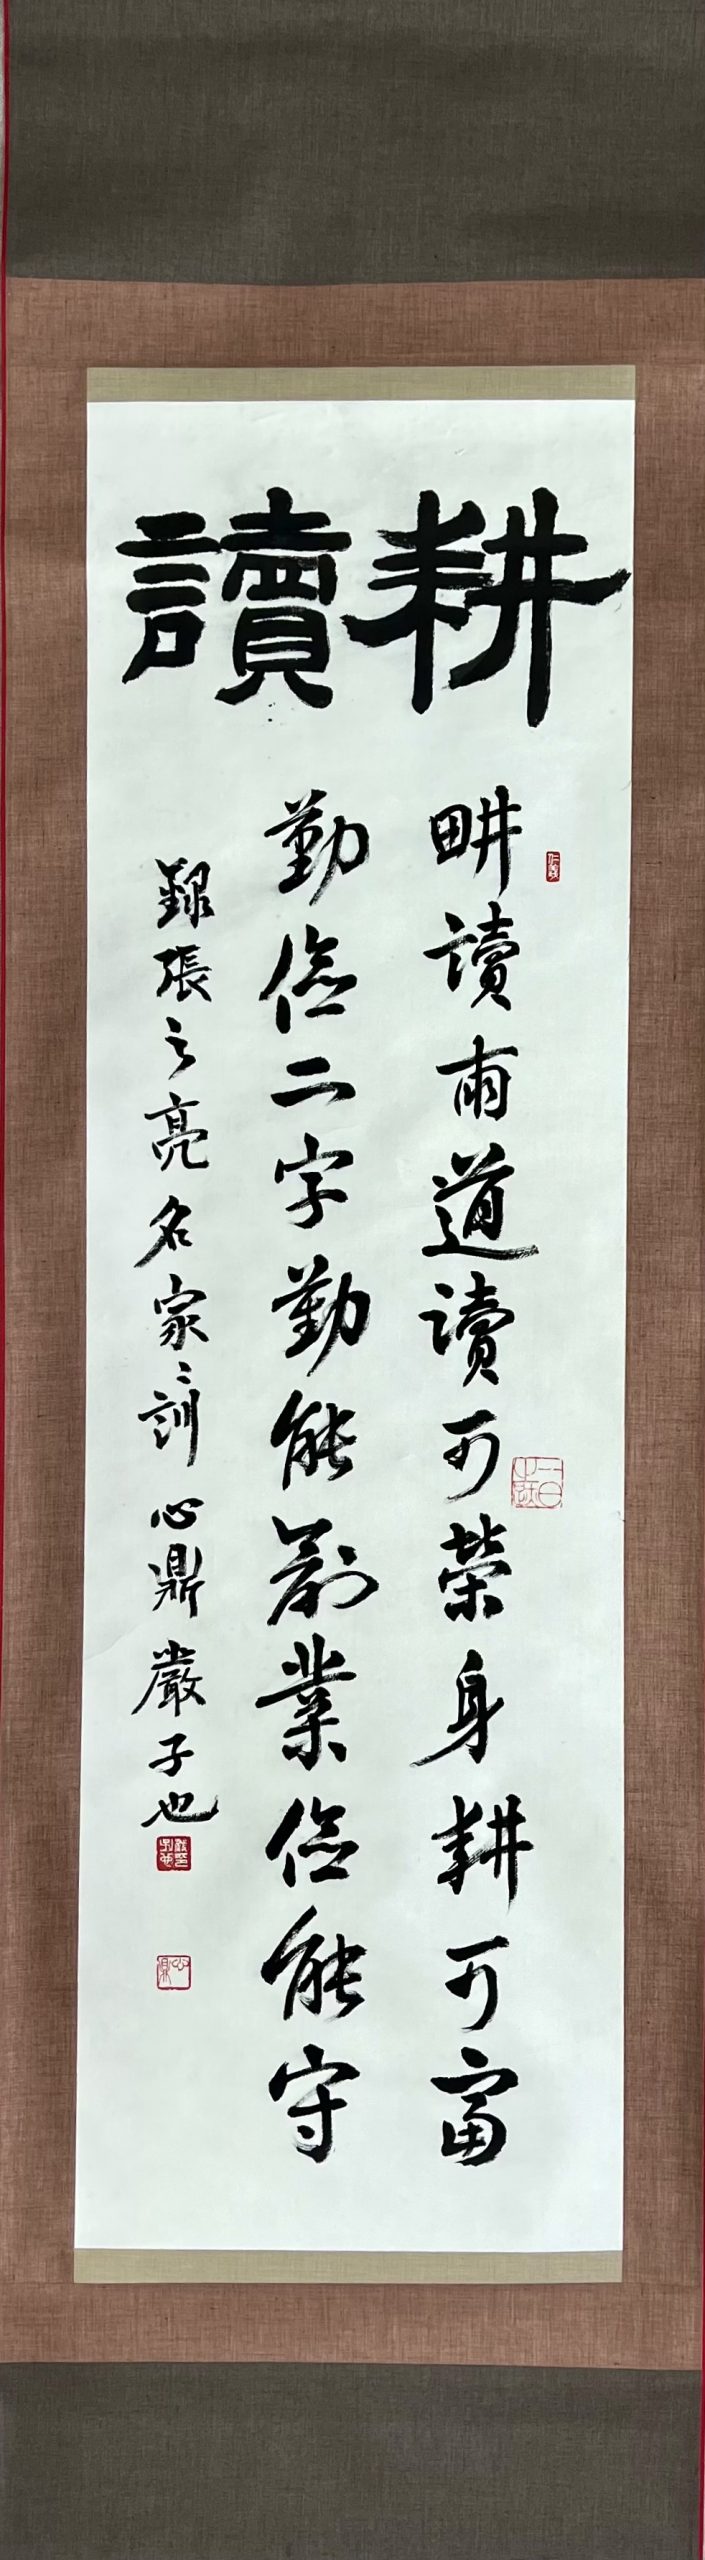 耕讀
畊讀兩道讀可榮身耕可富
勤儉二字勤能創業儉能守
録張之亮名家〻訓心鼎嚴子也
仁義
心鼎